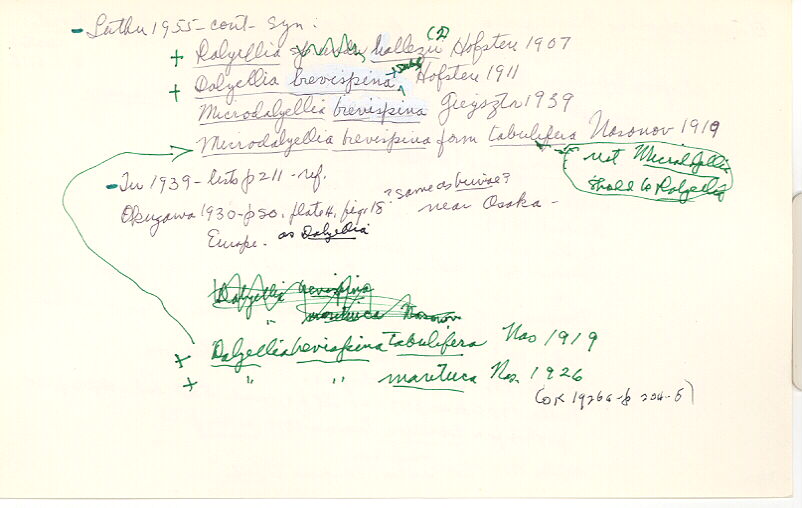 - Luther 1955 - cont - syn:
+ Dalyellia hallezii (2) Hofsten 1907
+ Dalyellia brevispina Hofsten 1911
Microdalyellia brevispina Gieysztor 1939
Microdalyellia brevispina form tabulifera Nasonov 1919
not Microdalyellia
should be Dalyellia
- In 1939 - lists p 211 - ref.
Okugawa 1930 - p 80, plate 4, figs 18 ? same as ? near Osaka -
Europe. as Dalyellia
Dalyellia brevispina
" maritima Nasonov
+ Dalyellia brevispina tabulifera Nas 1919
+ " " marituca Nas. 1926
(or 1926a - p 204-5)